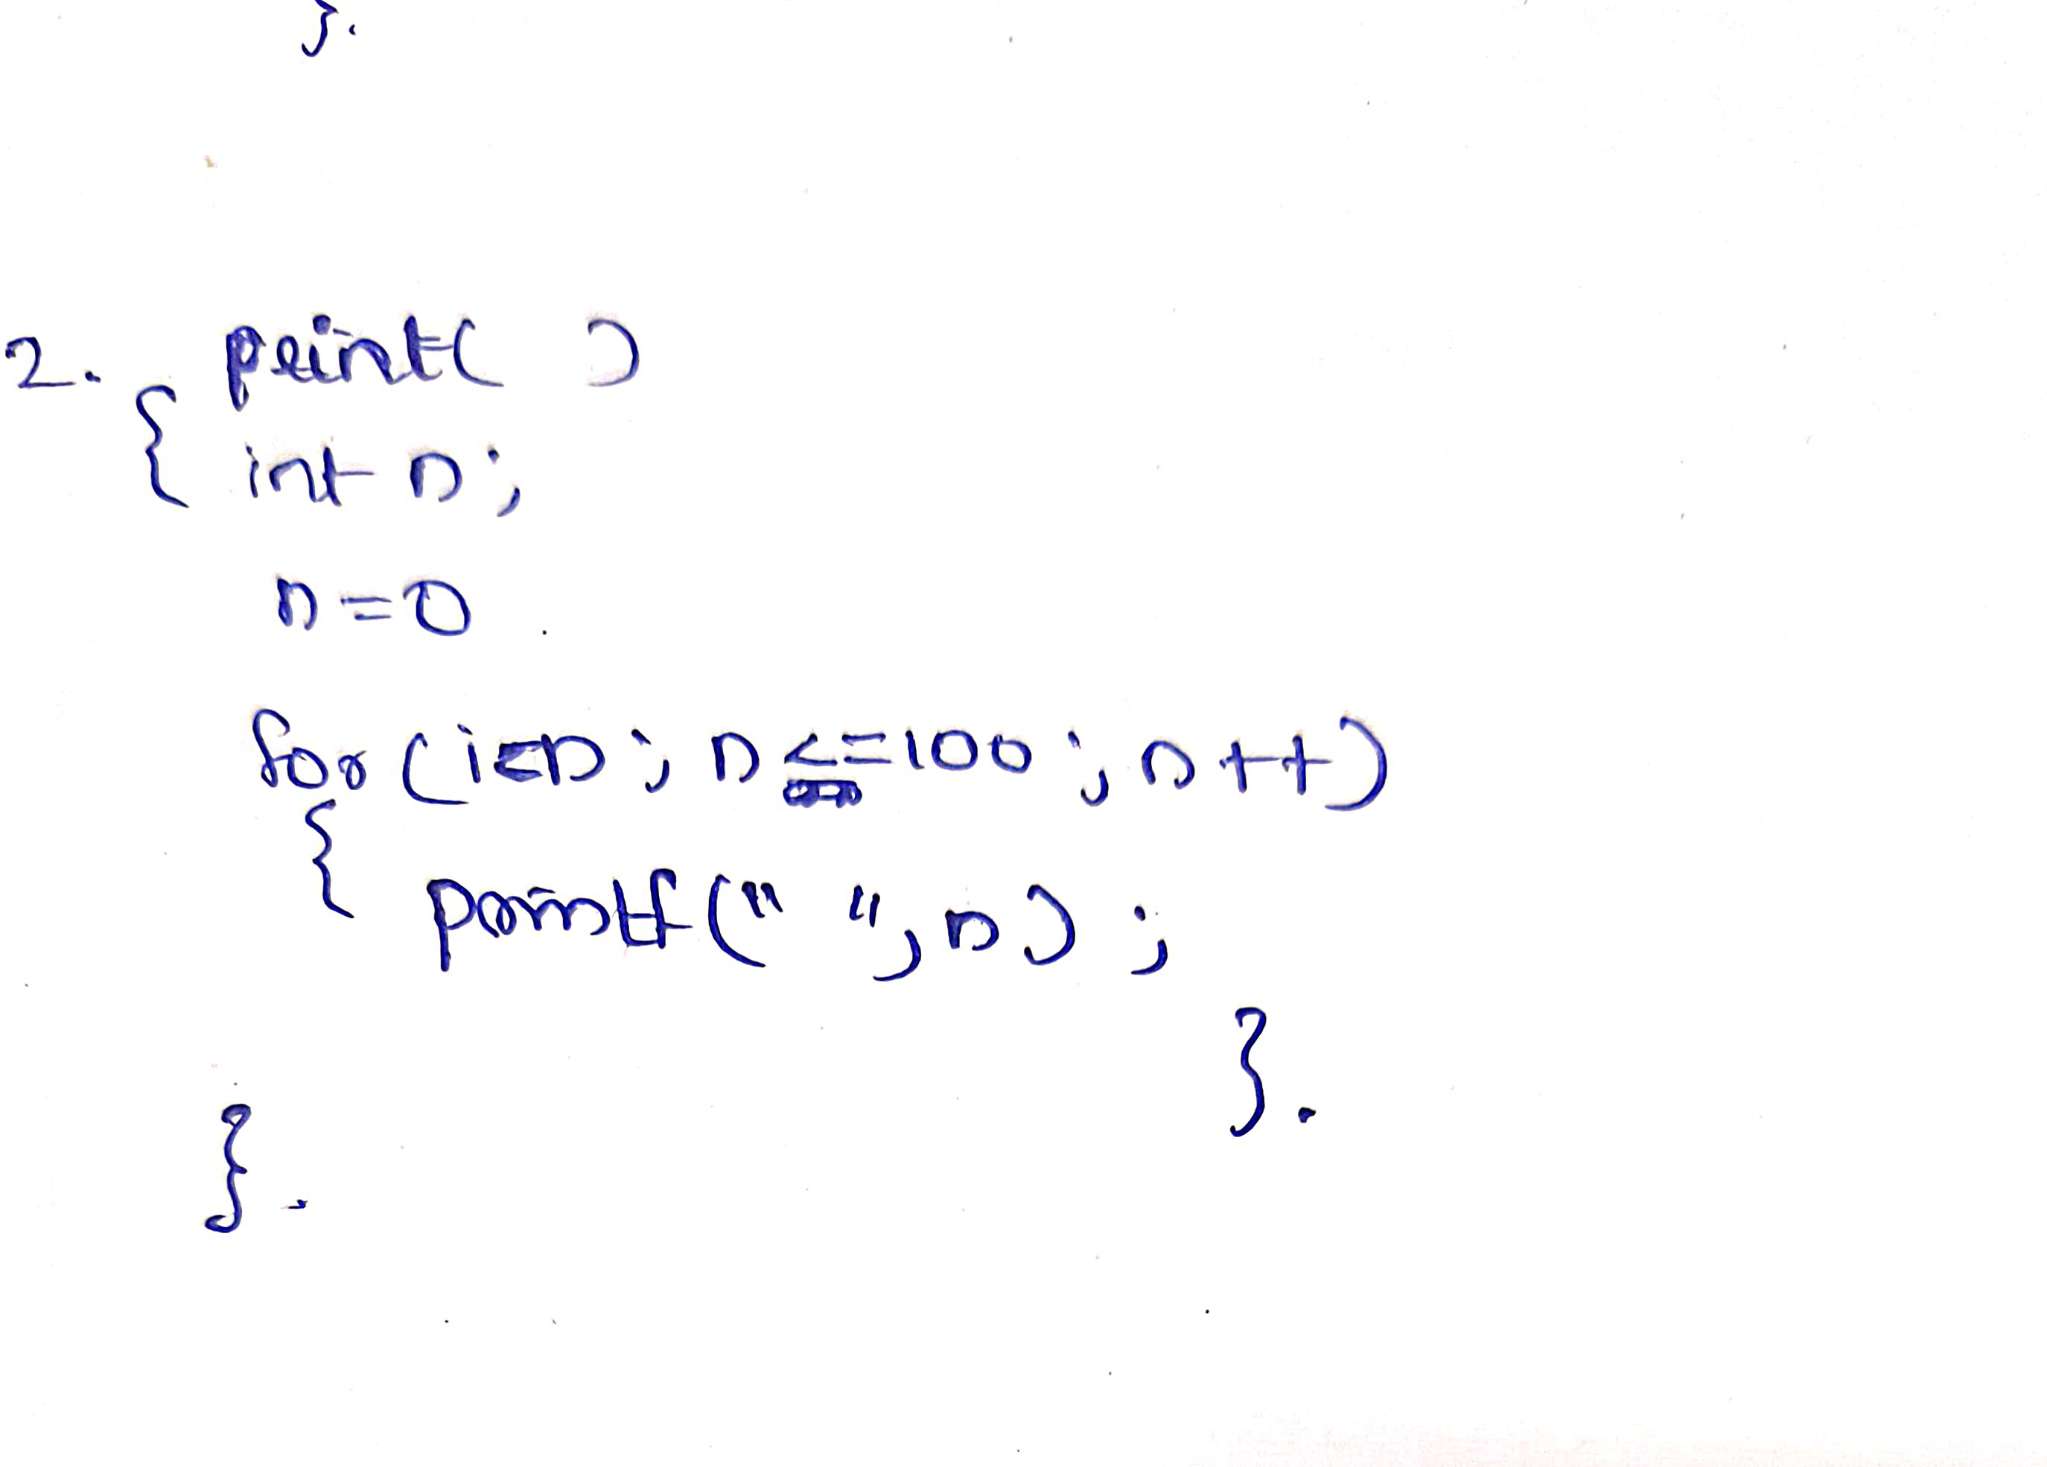 }.
2. print( )
{ int n;
n=0
for (i=n; n<=100; n++)
{ printf(" ", n);
}.
}.